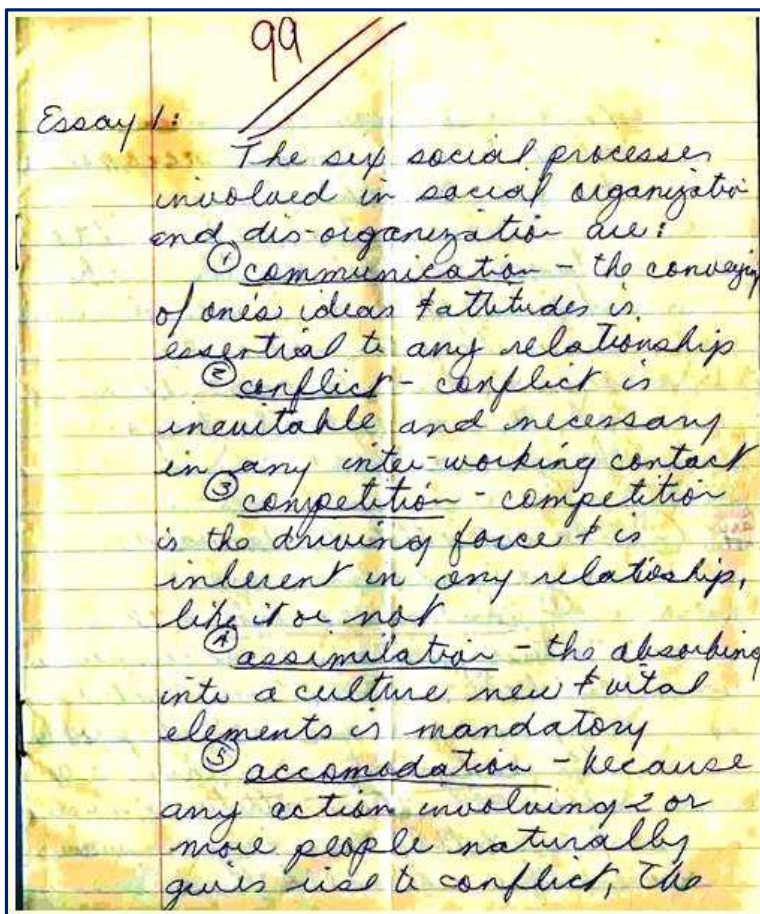 99
Essay 1:
The six social processes
involved in social organizatio
and dis-organization are:
① communication - the conveying
of one's ideas & attitudes is
essential to any relationship
② conflict - conflict is
inevitable and necessary
in any inter-working contact
③ competition - competition
is the driving force & is
inherent in any relatioship,
like it or not
④ assimilation - the absorbing
into a culture new & vital
elements is mandatory
⑤ accomodation - because
any action involving 2 or
more people naturally
gives rise to conflict, the